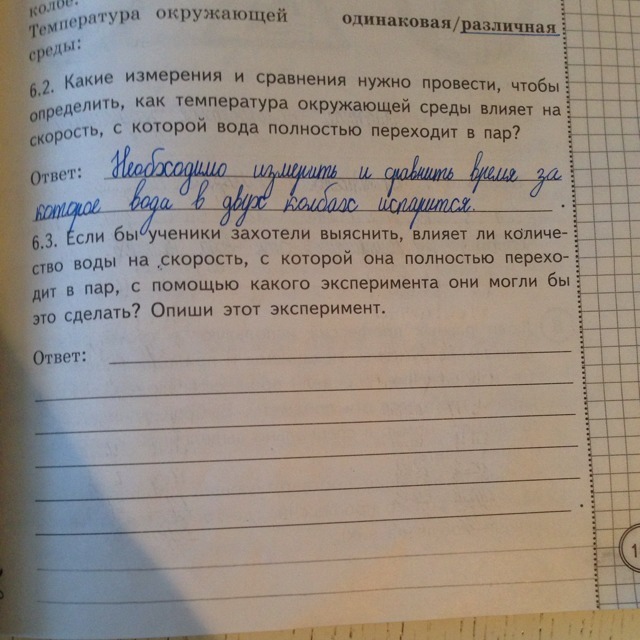 колбе:
Температура окружающей одинаковая/различная
среды:
6.2. Какие измерения и сравнения нужно провести, чтобы
определить, как температура окружающей среды влияет на
скорость, с которой вода полностью переходит в пар?
Ответ: Необходимо измерить и сравнить время за
которое вода в двух колбах испарится.
6.3. Если бы ученики захотели выяснить, влияет ли количе-
ство воды на скорость, с которой она полностью перехо-
дит в пар, с помощью какого эксперимента они могли бы
это сделать? Опиши этот эксперимент.
Ответ:
1